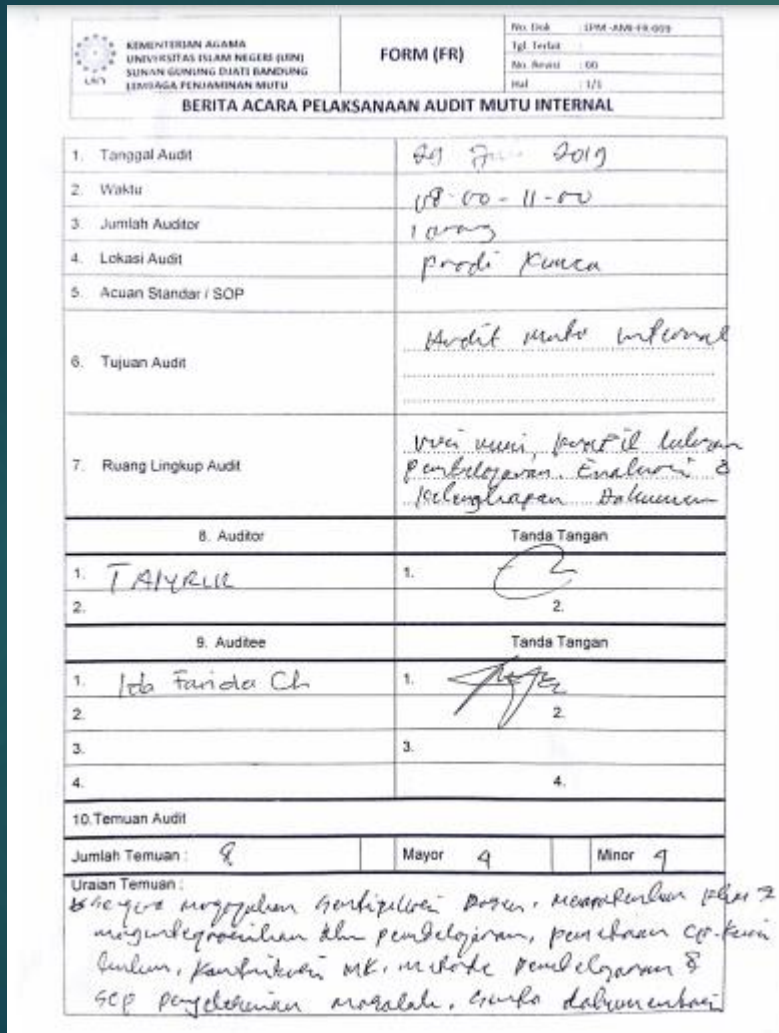 KEMENTERIAN AGAMA
UNIVERSITAS ISLAM NEGERI (UIN)
SUNAN GUNUNG DJATI BANDUNG
LEMBAGA PENJAMINAN MUTU
UIN
FORM (FR)
No. Dok : LPM-AMI-FR-009
Tgl. Terbit :
No. Revisi : 00
Hal : 1/1
BERITA ACARA PELAKSANAAN AUDIT MUTU INTERNAL
1. Tanggal Audit 29 2019
2. Waktu 08-00-11-00
3. Jumlah Auditor 1 orang
4. Lokasi Audit prodi
5. Acuan Standar / SOP
6. Tujuan Audit Audit Mutu internal
7. Ruang Lingkup Audit
profil lulusan
pembelajaran, Evaluasi &
kelengkapan Dokumen
8. Auditor Tanda Tangan
1. 1.
2. 2.
9. Auditee Tanda Tangan
1. Ida Farida Ch 1.
2. 2.
3. 3.
4. 4.
10. Temuan Audit
Jumlah Temuan : 8 Mayor 4 Minor 4
Uraian Temuan :
Segera Dosen,
pembelajaran,
MK, metode pembelajaran &
masalah, dokumentasi